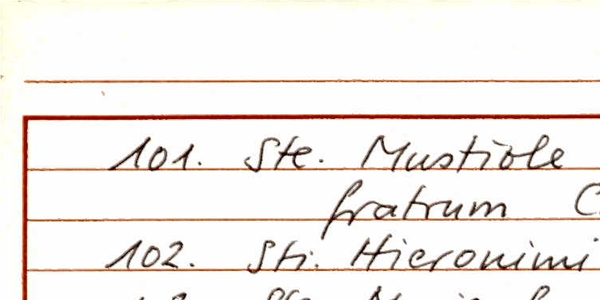 101. Ste. Mustiole
fratrum C
102. Sti. Hieronimi